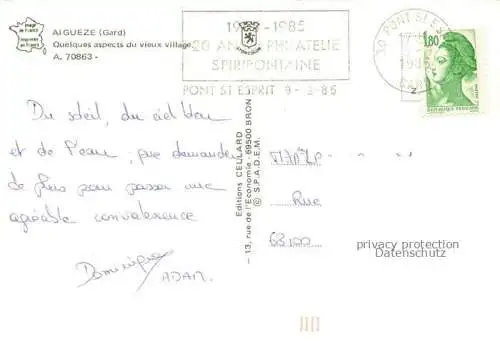 Image
de France
imprimée
en France
AIGUEZE (Gard)
Quelques aspects du vieux village
A. 70863 -
1965-1985
20 ANS PHILATELIE
SPIRIPONTAINE
PONT ST ESPRIT 9-3-85
30 PONT ST ES
1,80
REPUBLIQUE FRANCAISE
Du soleil, du ciel bleu
et de l'eau, que demander
de plus pour passer une
agréable convalescence
Dominique
ADAM.
Editions CELLARD - 69500 BRON
- 13, rue de l'Economie -
© S.P.A.D.E.M.
Rue
63100
privacy protection
Datenschutz